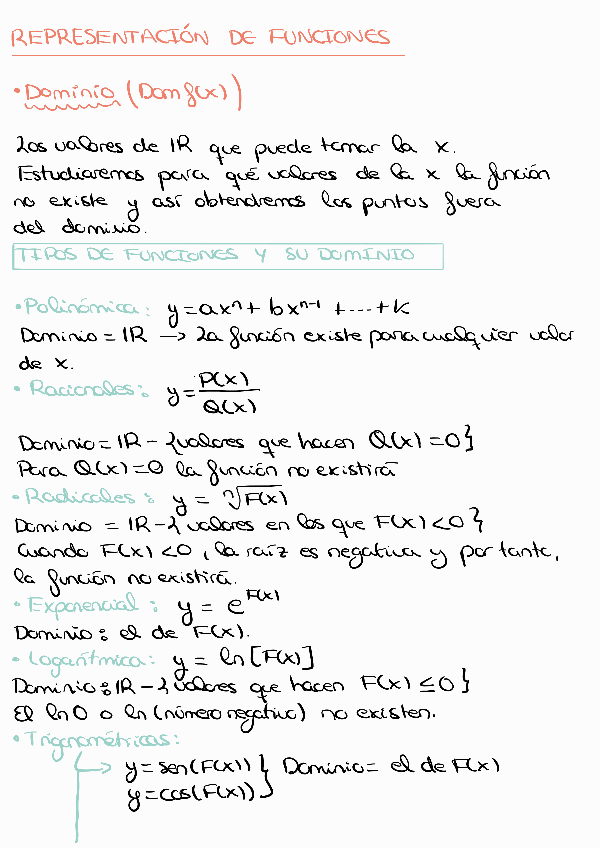 REPRESENTACIÓN DE FUNCIONES
• Dominio (Dom f(x))
Los valores de IR que puede tomar la x.
Estudiaremos para qué valores de la x la función
no existe y así obtendremos los puntos fuera
del dominio.
TIPOS DE FUNCIONES Y SU DOMINIO
• Polinómica: y=axⁿ+ bxⁿ⁻¹ +---+k
Dominio = IR —> La función existe para cualquier valor
de x.
• Racionales: y= P(x)/Q(x)
Dominio = IR - {valores que hacen Q(x)=0}
Para Q(x)=0 la función no existirá
• Radicales: y = ⁿ√F(x)
Dominio = IR - {valores en los que F(x) <0}
Cuando F(x) <0, la raíz es negativa y por tanto,
la función no existirá.
• Exponencial: y = e^F(x)
Dominio: el de F(x).
• Logarítmica: y = ln [F(x)]
Dominio: IR - {valores que hacen F(x) ≤0}
El ln 0 o ln (número negativo) no existen.
• Trigonométricas:
→ y=sen(F(x)) } Dominio= el de F(x)
y=cos(F(x))